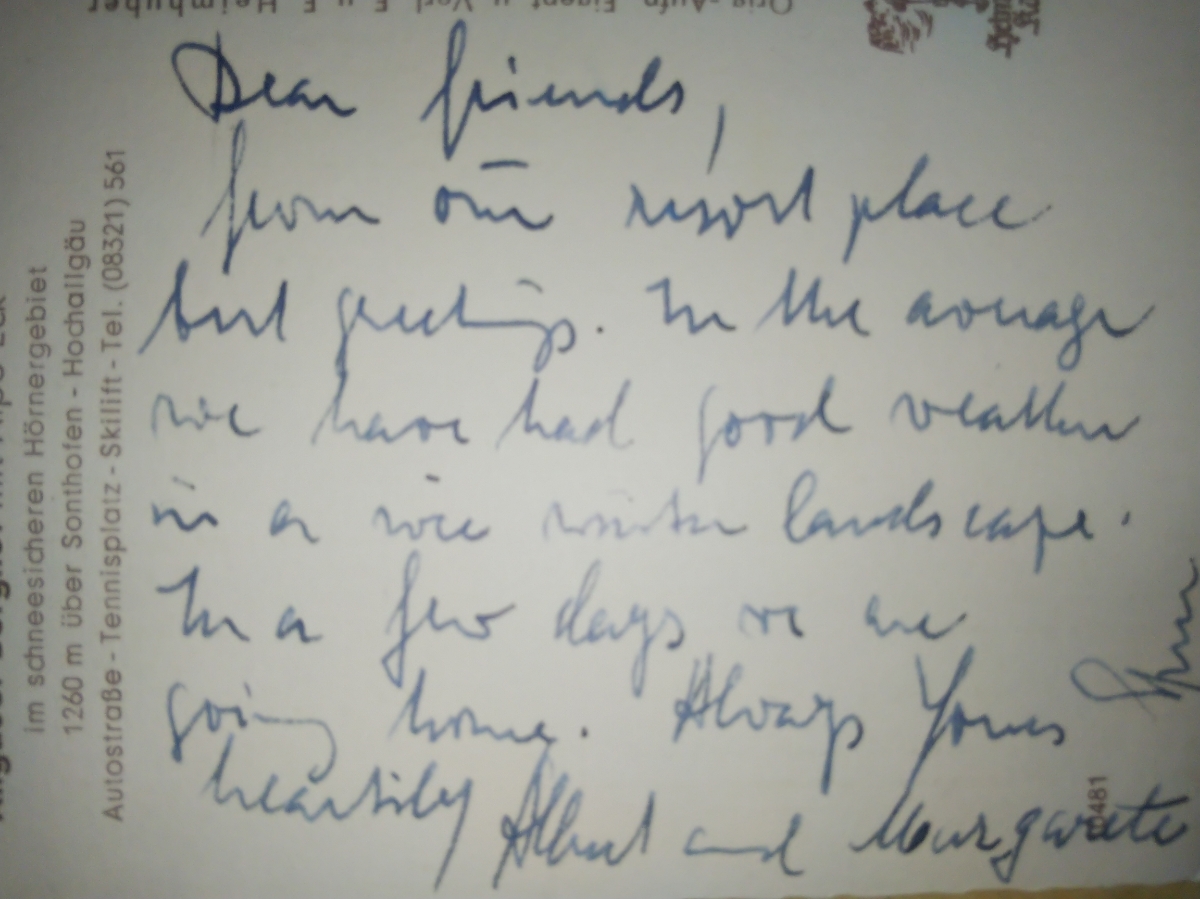 Dear friends,
from our resort place
best greetings. In the average
we have had good weather
in a nice winter landscape.
In a few days we are
going home. Always Yours
heartily Albert and Margarete
im schneesicheren Hörnergebiet
1260 m über Sonthofen - Hochallgäu
Autostraße - Tennisplatz - Skilift - Tel. (08321) 561
Orig.-Aufn. Eigent. u. Verl. F. u. E. Heimhuber
0481